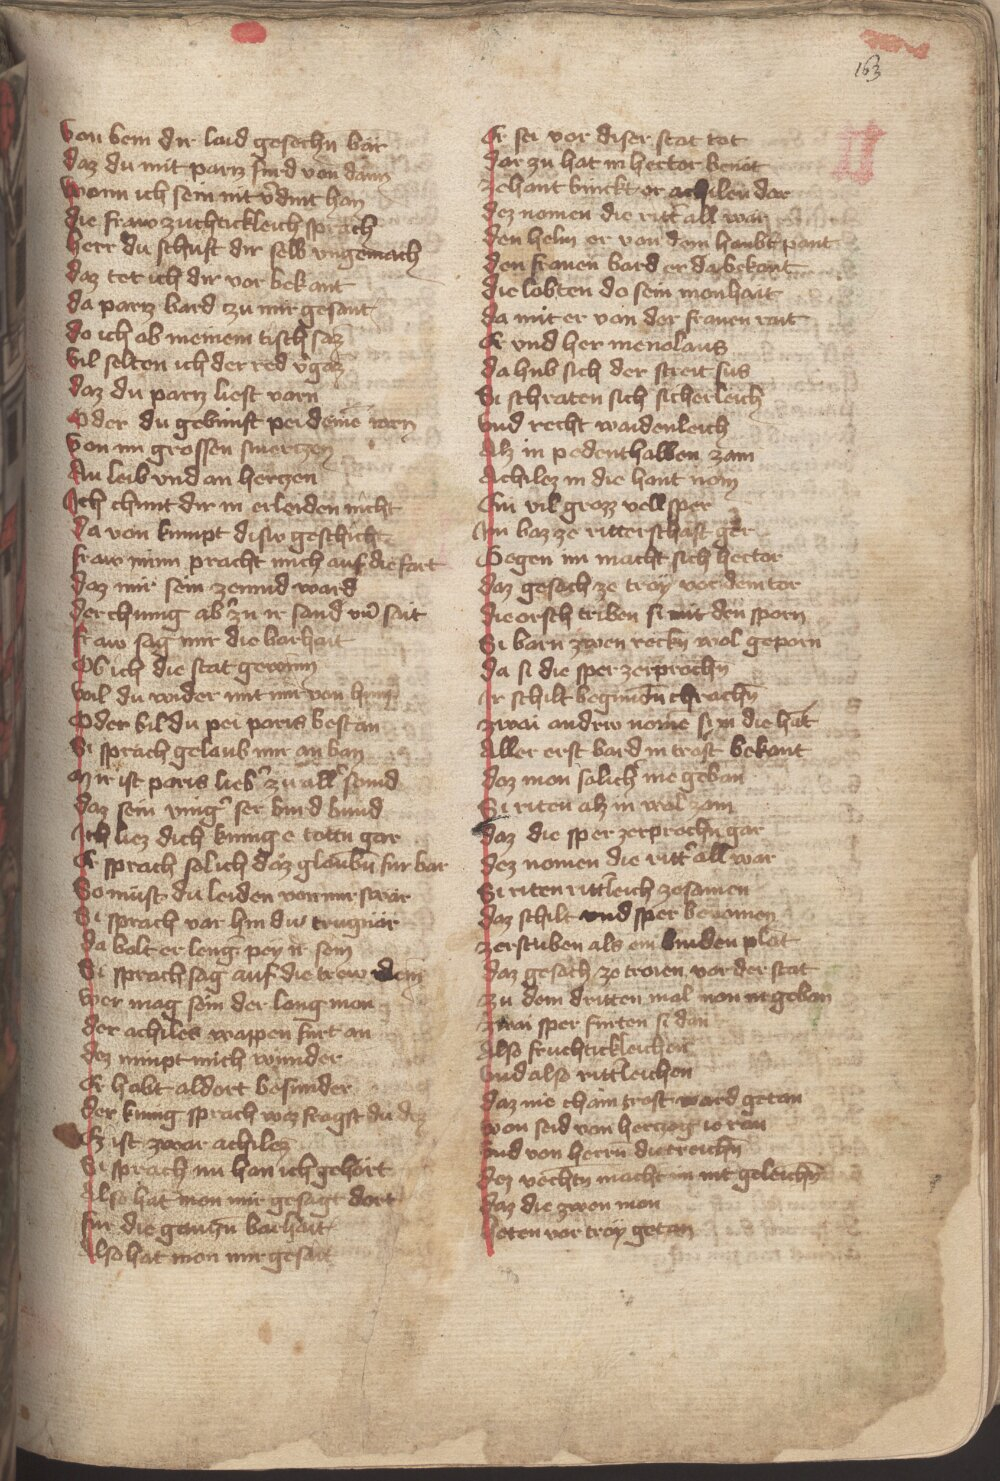 163
Von bem dir laid geschehn bar
daz du mit paris sind von dann
wann ich sein nit v̂dint han
die fraw zuchtickleich sprach
herr du schuft dir selb ungemach
daz tet ich dir vor bekant
da paris bard zu mir gesant
do ich ob meinem tisch saz
Vil selten ich der red v̂gaz
daz du paris liest varn
Oder du gebinst pei deine
Von im grossen smertzen
An leib vnd an hertzen
Ich chunt dir in erleiden nicht
Da von kumpt disw geschicht
fraw minn pracht mich auf die fart
daz mir sein ze ward
der chunig ab̂ zu ir sand vn̄ sait
fraw sag mir die barhait
Ob ich die stat gewinn
wil du wider mit mir von hinn
Oder bil du pei paris bestan
Si sprach gelaub mir an ban
Mir ist paris lieb̂ zu all̂ stund
daz sein vinĝ ser bird bund
Ich liez dich kunig e tottn gar
Er sprach sol ich daz glaubn fur bar
So must du leiden von mir swar
Si sprach var hin du trugnar
da bolt er leng pey ir sein
Si sprach sag auf die trew dein
Wer mag sein der lang man
der achiles wappen furt an
dez nimpt mich wunder
Er habt aldort besunder
der kunig sprach waz fragst du dez
Ez ist zwar achilez
Si sprach nu han ich gehort
Also hat man mir gesagt dort
fur die gantzn barhait
Also hat man mir gesait
Er sei vor diser stat tot
dar zu hat in hector benot
zehant binckt er achilen dar
dez nomen die ritt̂ all war
den helm er von dem haubt pant
den frauen bard er da bekant
die lobten do sein manhait
da mit er von der frauen rait
Er vnd her menalaus
da hub sich der streit sus
Si schraten sich sicherleich
vnd recht waidenleich
Alz in pedenthalben zam
Achilez in die hant nom
Ein vil grozz vell sper
Im baz ze ritterschaft ger
Gegen im macht sich hector
daz gesach ze troy vor dem tor
die orsch triben si mit den sporn
Si barn zwen reckn wol geporn
da si die sper zerprachn
Ir schilt begundn chrachn̄
zwai andrw nome si in die hāt
Aller erst bard in trost bekant
daz man solich nie geban
Si riten alz in wol zam
daz die sper zerprachn gar
dez nomen die ritt̂ all war
Si riten rittleich zesamen
daz schilt vnd sper benomen
zerstuben als ein linden plat
daz gesach ze troien vor der stat
zu dem dritten mal man in geban
zwai sper furten si dan
Also fruchtickleichen
vnd also rittleichen
daz nie cham trost ward getan
von seid von hertzog io ran
vnd von herrn ditreichn̄
dez vechtn macht in nit geleichn̄
daz die zwen man
heten vor troy getan